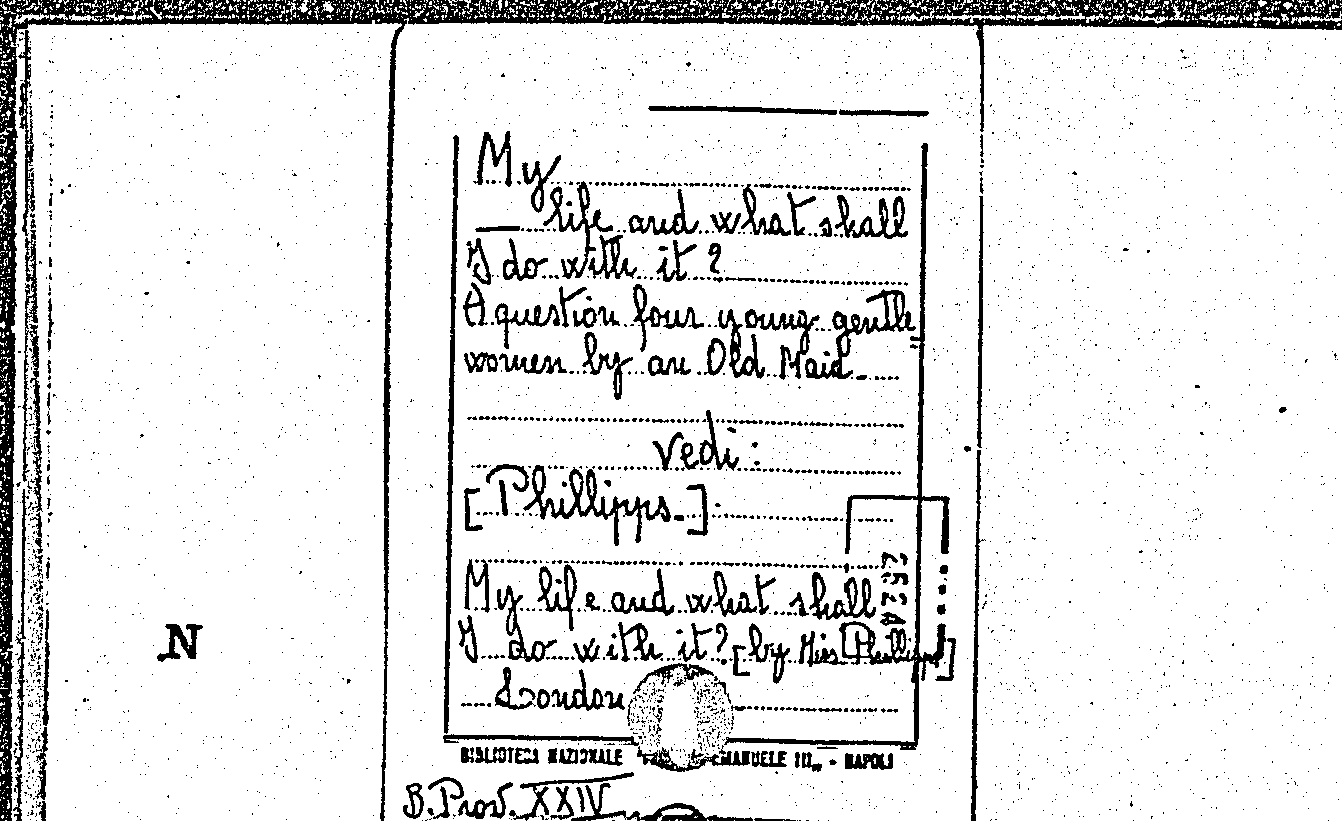 My
life and what shall
I do with it?
A question four young gentle„
women by an Old Maid
vedi:
[Phillipps].
My life and what shall
I do with it? [by Miss Phillipps]
London
BIBLIOTECA NAZIONALE EMANUELE III„ - NAPOLI
B. Prov. XXIV
N